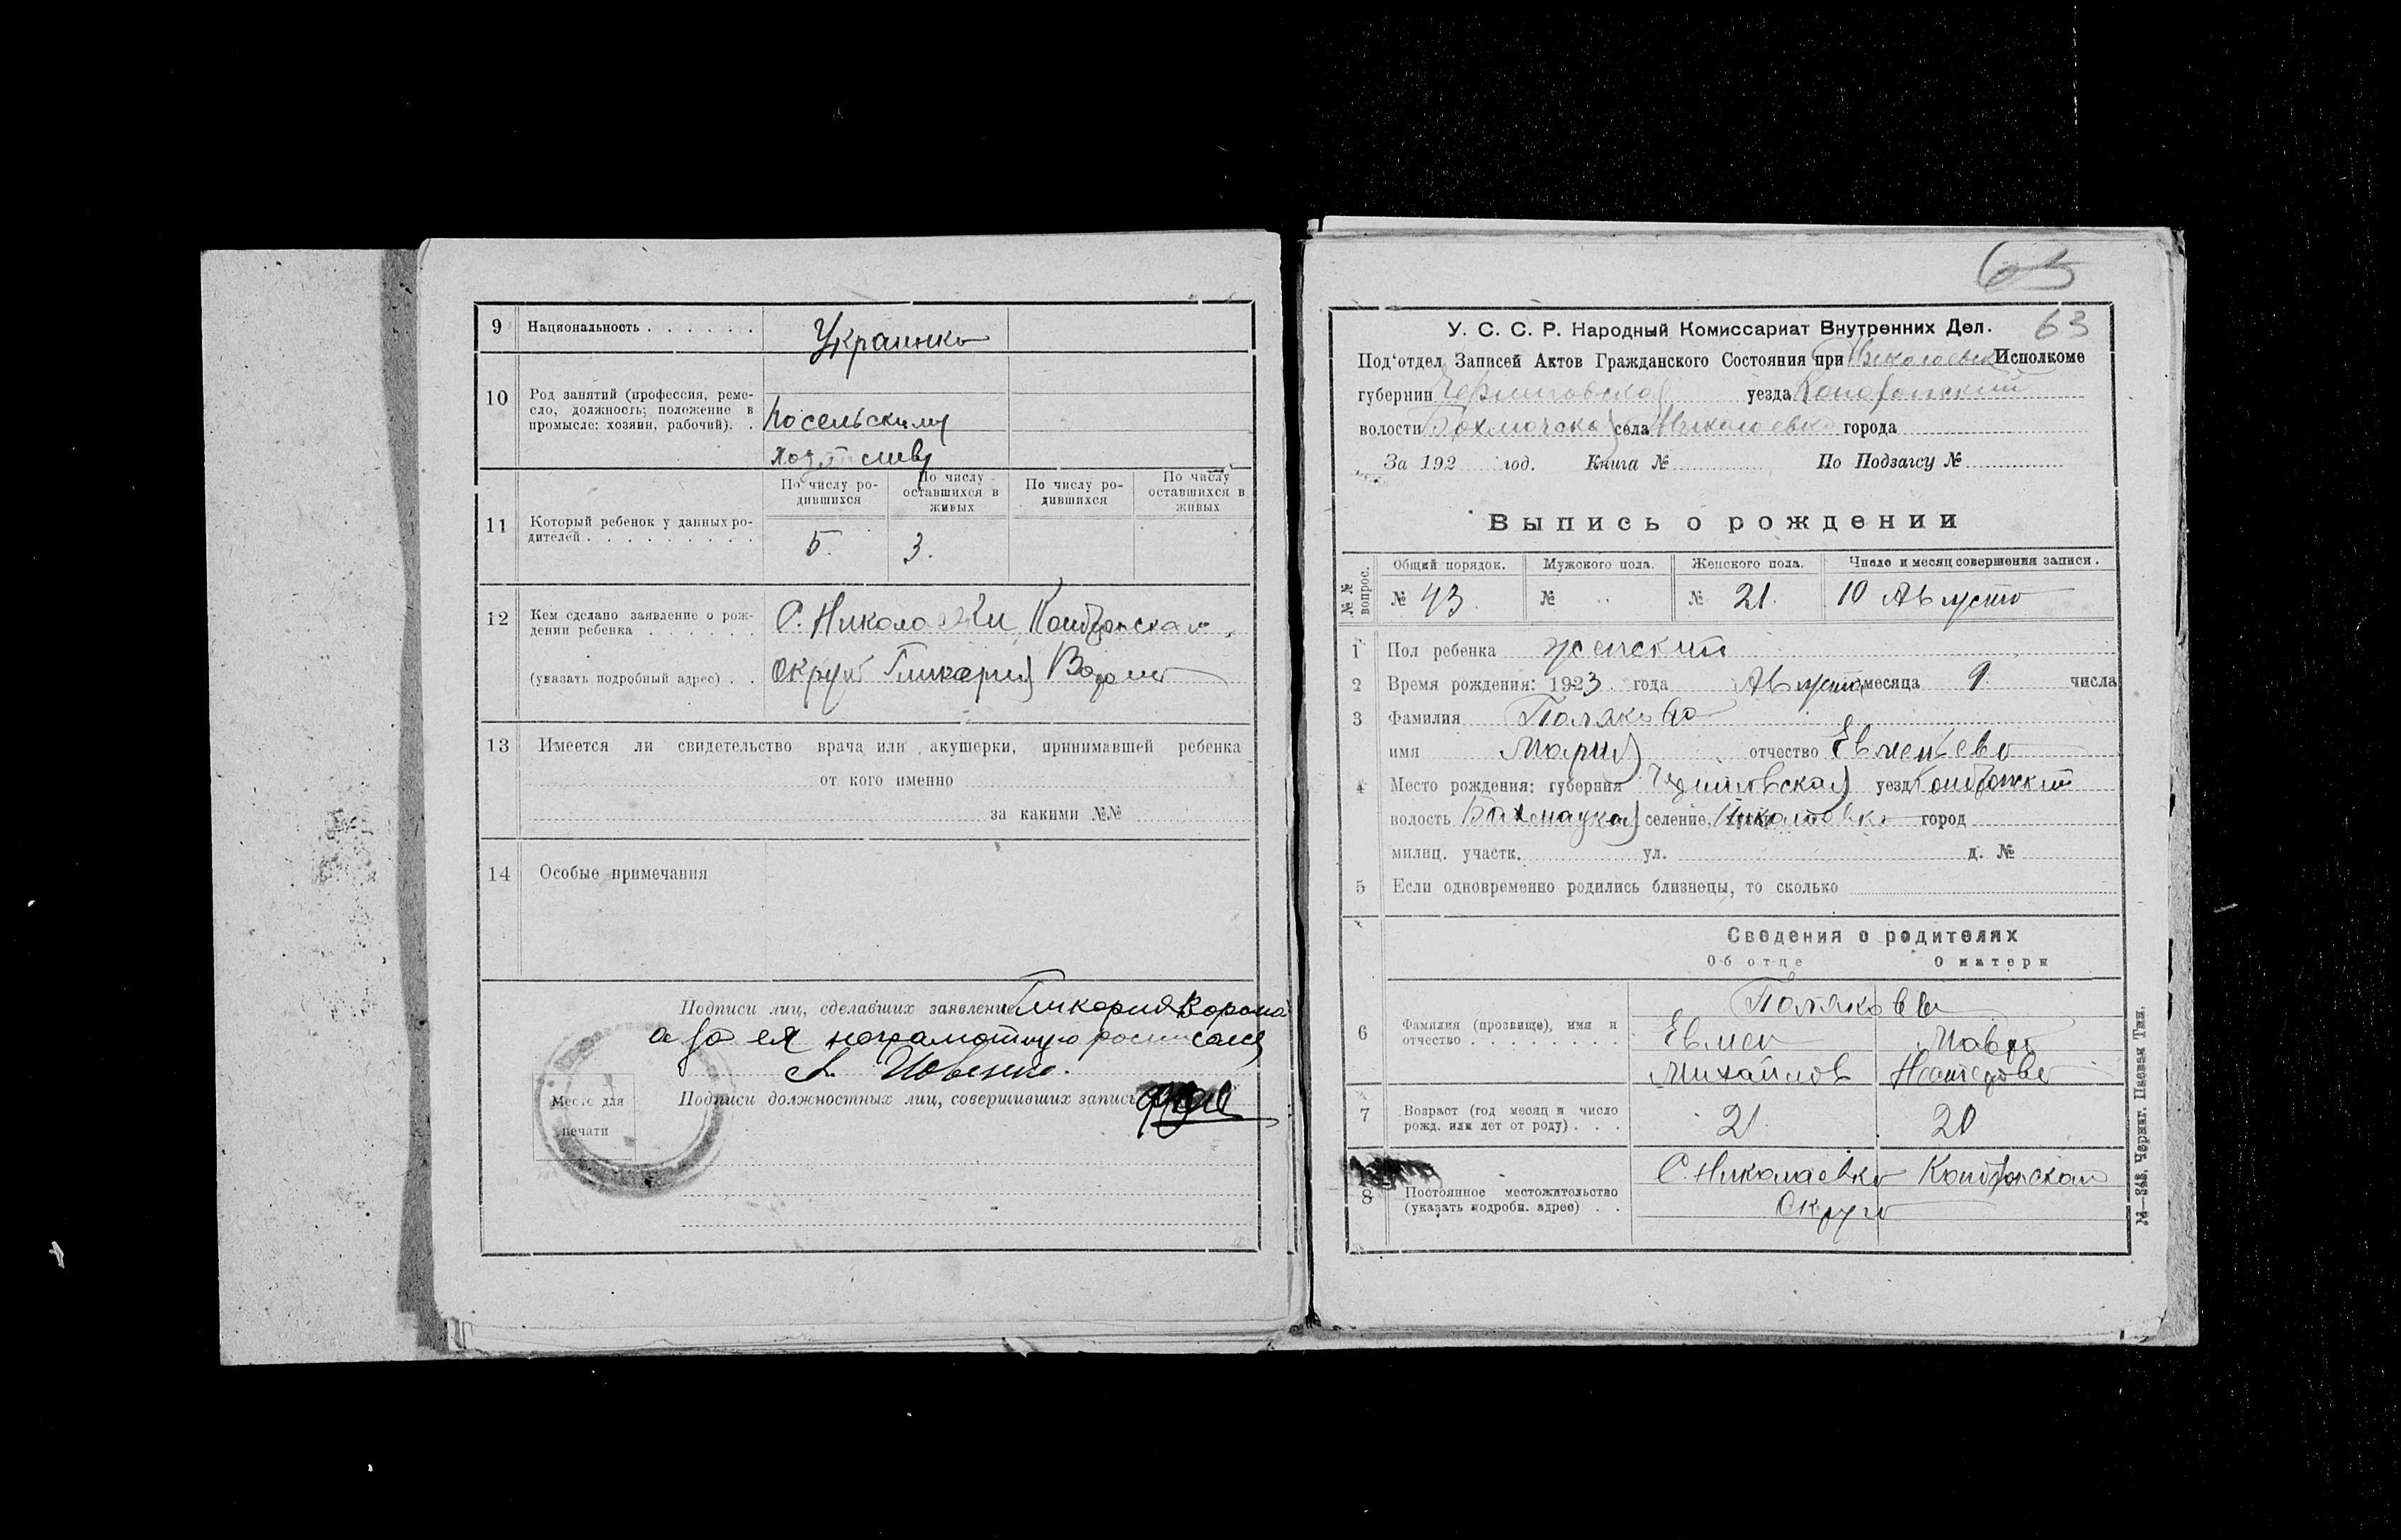 9 Национальность . . . . . . Украинка
10 Род занятий (профессия, реме-
сло, должность; положение в
промысле: хозяин, рабочий). .
11 Который ребенок у данных ро-
дителей . . . . . . . . .
По числу ро-
дившихся
По числу
оставшихся в
живых
По числу ро-
дившихся
По числу
оставшихся в
живых
5. 3.
12 Кем сделано заявление о рож-
дении ребенка . . . . . . С.
(указать подробный адрес) . . Гликерия
13 Имеется ли свидетельство врача или акушерки, принимавшей ребенка
от кого именно
за какими №№
14 Особые примечания
Подписи лиц, сделавших заявление Гликерия Ворона
а за ея неграмотную
Подписи должностных лиц, совершивших запись
Место для
печати
63
У. С. С. Р. Народный Комиссариат Внутренних Дел.
Под‘отдел Записей Актов Гражданского Состояния при Исполкоме
губернии Черниговской уезда Конотопский
волости Бахмачской села Николаевка города
За 192 год. Книга № По Подзагсу №
Выпись о рождении
№№ вопрос.
Общий порядок. Мужского пола. Женского пола. Число и месяц совершения записи.
№ 43. № № 21. 10 Августа
1 Пол ребенка женский
2 Время рождения: 1923 года Августа месяца 9 числа
3 Фамилия Полякова
имя Мария отчество
4 Место рождения: губерния Черниговская уезд Конотопский
волость селение, город
милиц. участк. ул. д. №
5 Если одновременно родились близнецы, то сколько
Сведения о родителях
Об отце О матери
6 Фамилия (прозвище), имя и
отчество . . . . . . . .
Поляковы
Евмен Мавра
Михайлов
7 Возраст (год месяц и число
рожд. или лет от роду) . . . 21. 20
8 Постоянное местожительство
(указать подробн. адрес) . .
С. Николаевка Конотопская
Округа
М—848. Черниг. Паевая Тип.